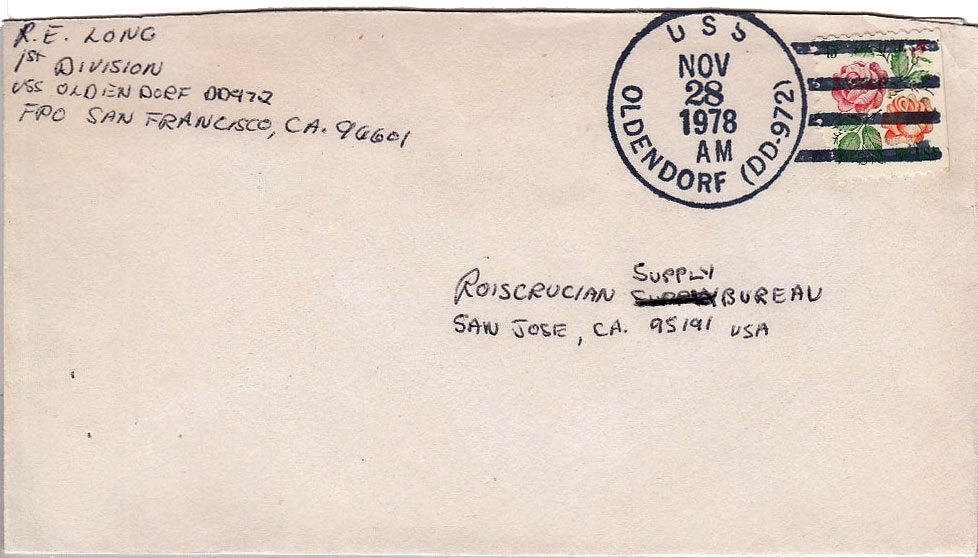 R.E. LONG
1ST DIVISION
USS OLDENDORF DD972
FPO SAN FRANCISCO, CA. 96601
USS
NOV
28
1978
AM
OLDENDORF (DD-972)
15
USA
SUPPLY
ROISCRUCIAN SUPPLY BUREAU
SAN JOSE, CA. 95191 USA